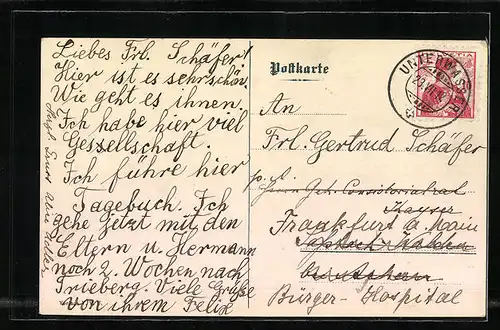 Liebes Frl. Schäfer!
Hier ist es sehr schön.
Wie geht es ihnen.
Ich habe hier viel
Gessellschaft.
Ich führe hier
Tagebuch. Ich
gehe jetzt mit den
Eltern u. Hermann
noch 2. Wochen nach
Trieberg. Viele Grüße
von ihrem Felix
Postkarte
UNTERWASSER
An
Frl. Gertrud Schäfer
Frankfurt a. Main
Bürger-Hospital